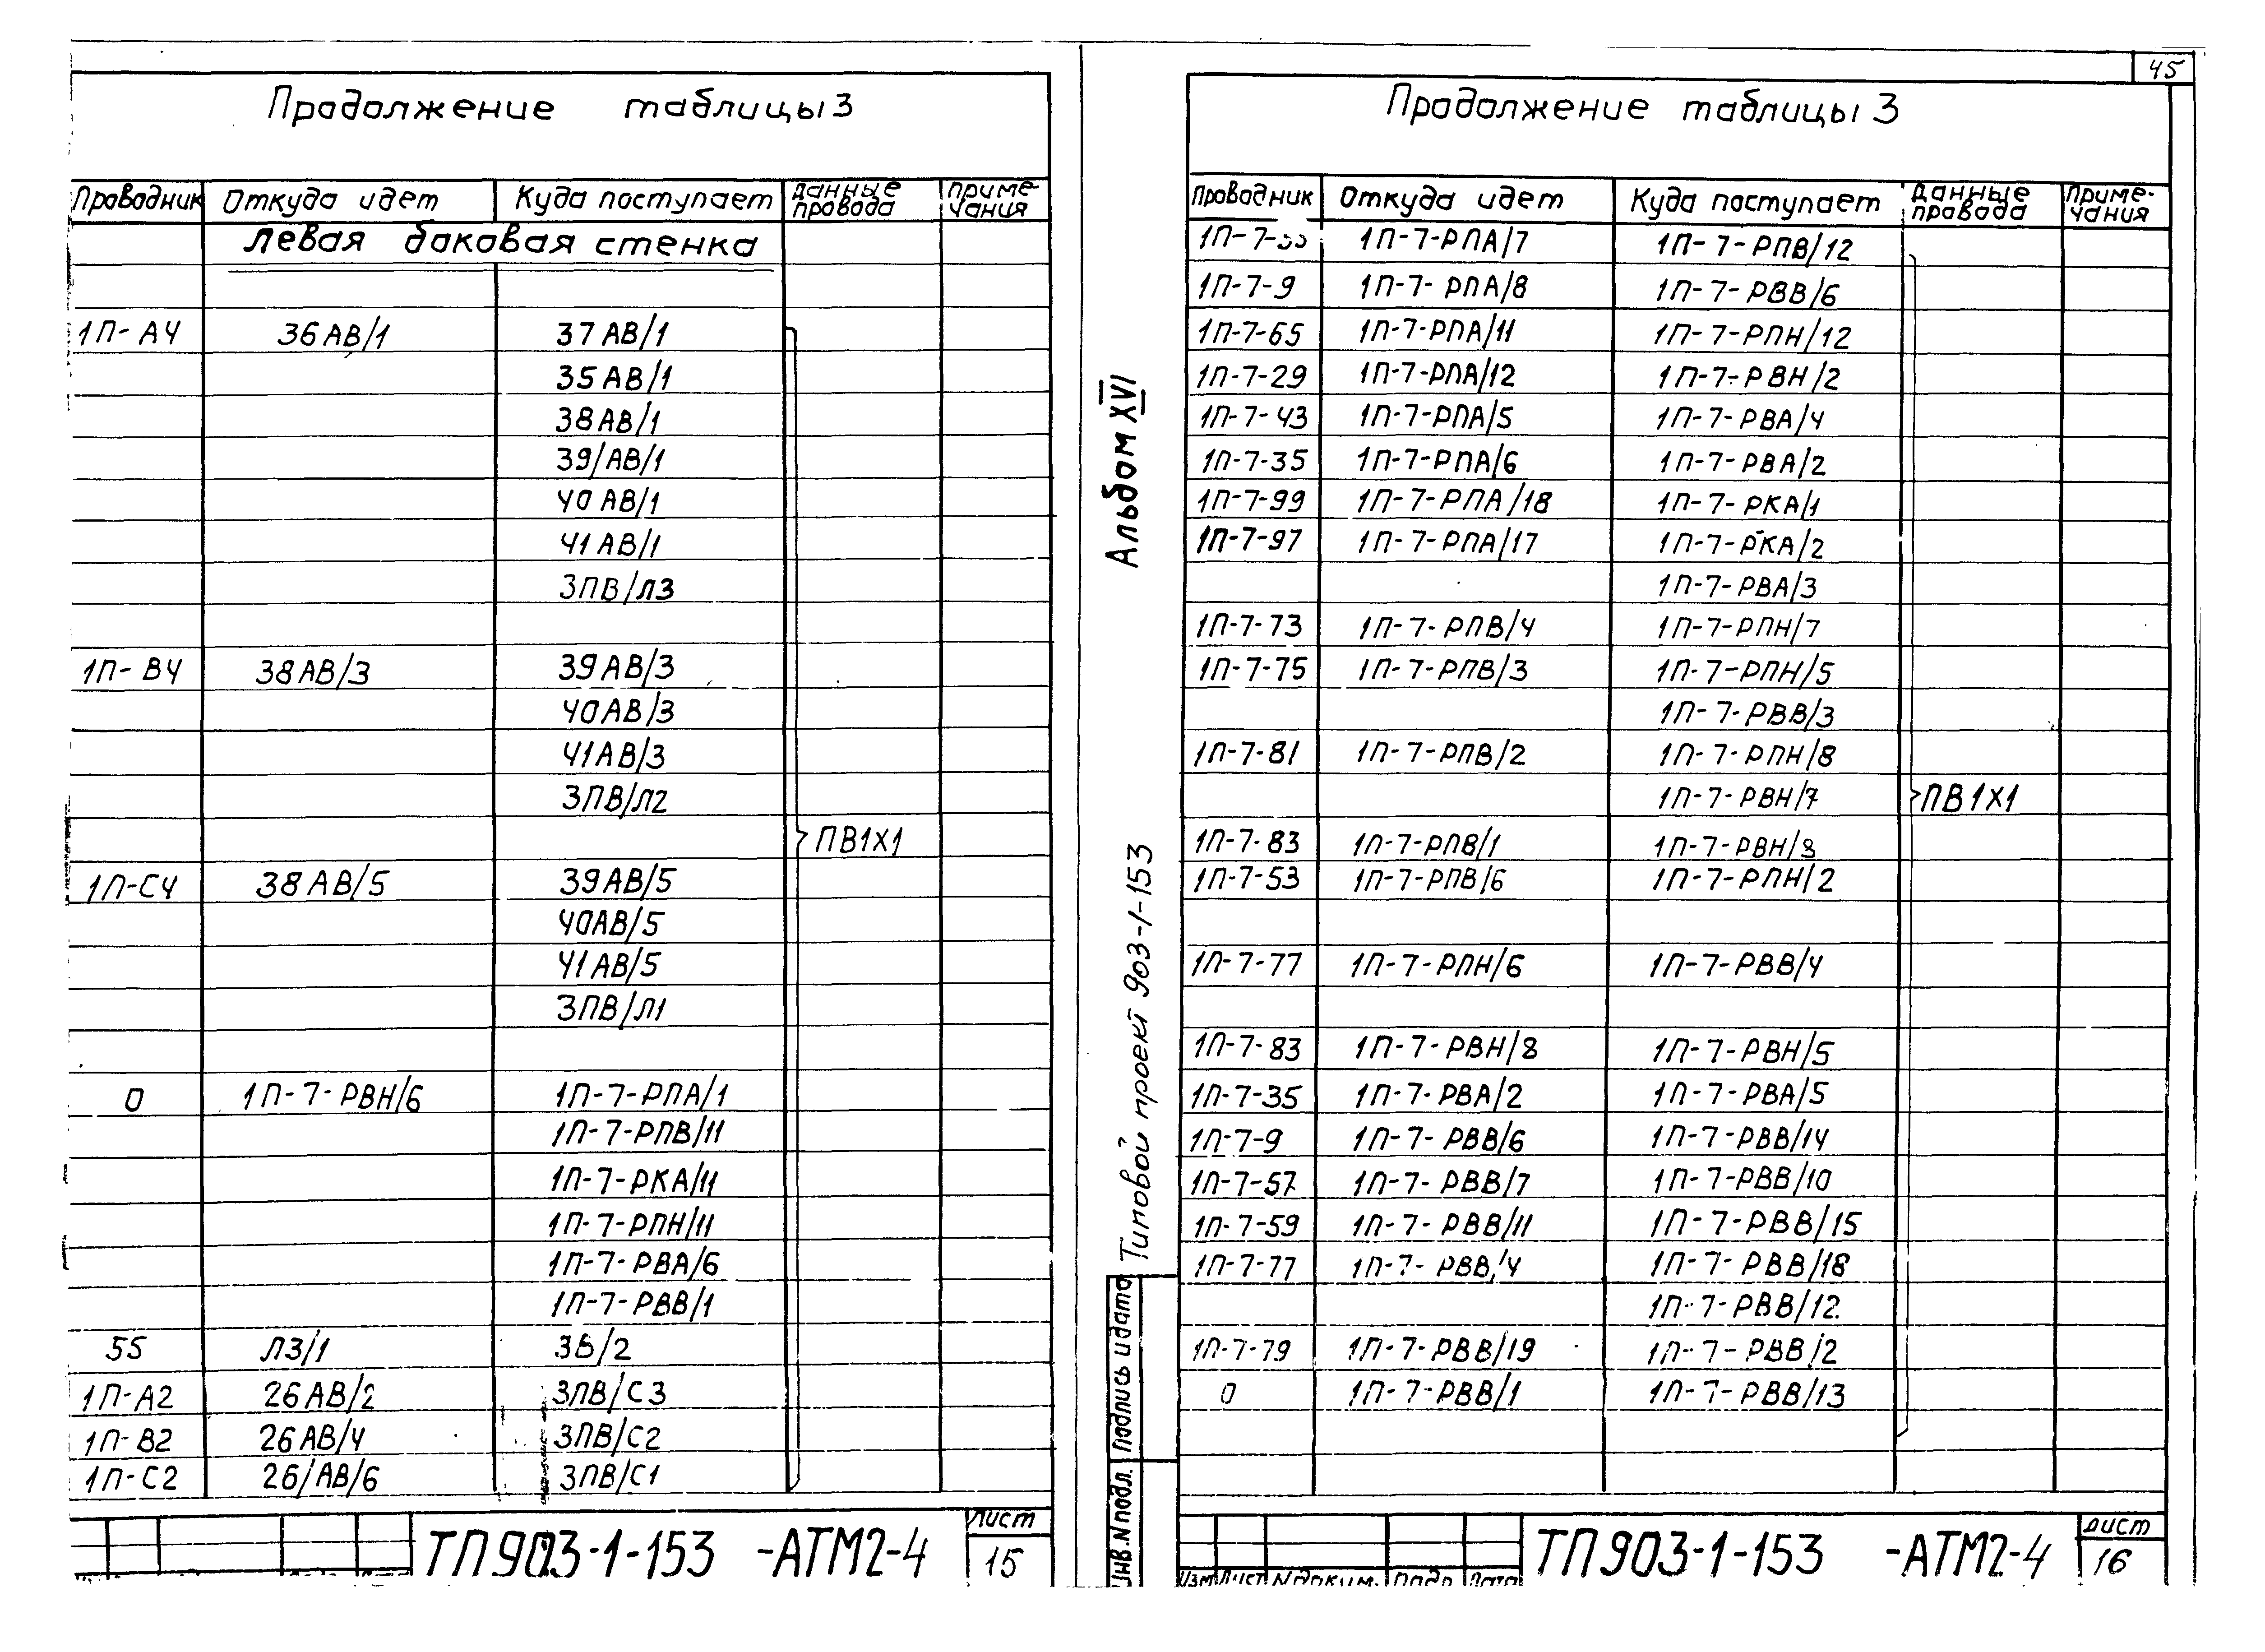 Продолжение таблицы 3
Проводник Откуда идет Куда поступает Данные провода Примечания
Левая боковая стенка
1П-А4 36АВ/1 37АВ/1
35АВ/1
38АВ/1
39/АВ/1
40АВ/1
41АВ/1
3ПВ/Л3
1П-В4 38АВ/3 39АВ/3
40АВ/3
41АВ/3
3ПВ/Л2
ПВ1Х1
1П-С4 38АВ/5 39АВ/5
40АВ/5
41АВ/5
3ПВ/Л1
0 1П-7-РВН/6 1П-7-РПА/1
1П-7-РПВ/11
1П-7-РКА/11
1П-7-РПН/11
1П-7-РВА/6
1П-7-РВВ/1
55 Л3/1 3В/2
1П-А2 26АВ/2 3ПВ/С3
1П-В2 26АВ/4 3ПВ/С2
1П-С2 26/АВ/6 3ПВ/С1
ТП903-1-153 -АТМ2-4
Лист
15
Альбом XVI
Типовой проект 903-1-153
Подпись и дата
Инв.N подл.
45
Продолжение таблицы 3
Проводник Откуда идет Куда поступает Данные провода Примечания
1П-7-РПА/7 1П-7-РПВ/12
1П-7-9 1П-7-РПА/8 1П-7-РВВ/6
1П-7-65 1П-7-РПА/11 1П-7-РПН/12
1П-7-29 1П-7-РПА/12 1П-7-РВН/2
1П-7-43 1П-7-РПА/5 1П-7-РВА/4
1П-7-35 1П-7-РПА/6 1П-7-РВА/2
1П-7-99 1П-7-РПА/18 1П-7-РКА/1
1П-7-97 1П-7-РПА/17 1П-7-РКА/2
1П-7-РВА/3
1П-7-73 1П-7-РПВ/4 1П-7-РПН/7
1П-7-75 1П-7-РПВ/3 1П-7-РПН/5
1П-7-РВВ/3
1П-7-81 1П-7-РПВ/2 1П-7-РПН/8
1П-7-РВН/7 ПВ1Х1
1П-7-83 1П-7-РПВ/1 1П-7-РВН/8
1П-7-53 1П-7-РПВ/6 1П-7-РПН/2
1П-7-77 1П-7-РПН/6 1П-7-РВВ/4
1П-7-83 1П-7-РВН/8 1П-7-РВН/5
1П-7-35 1П-7-РВА/2 1П-7-РВА/5
1П-7-9 1П-7-РВВ/6 1П-7-РВВ/14
1П-7-57 1П-7-РВВ/7 1П-7-РВВ/10
1П-7-59 1П-7-РВВ/11 1П-7-РВВ/15
1П-7-77 1П-7-РВВ/4 1П-7-РВВ/18
1П-7-РВВ/12
1П-7-79 1П-7-РВВ/19 1П-7-РВВ/2
0 1П-7-РВВ/1 1П-7-РВВ/13
Изм Лист N докум. Подп Дата
ТП903-1-153 -АТМ2-4
Лист
16